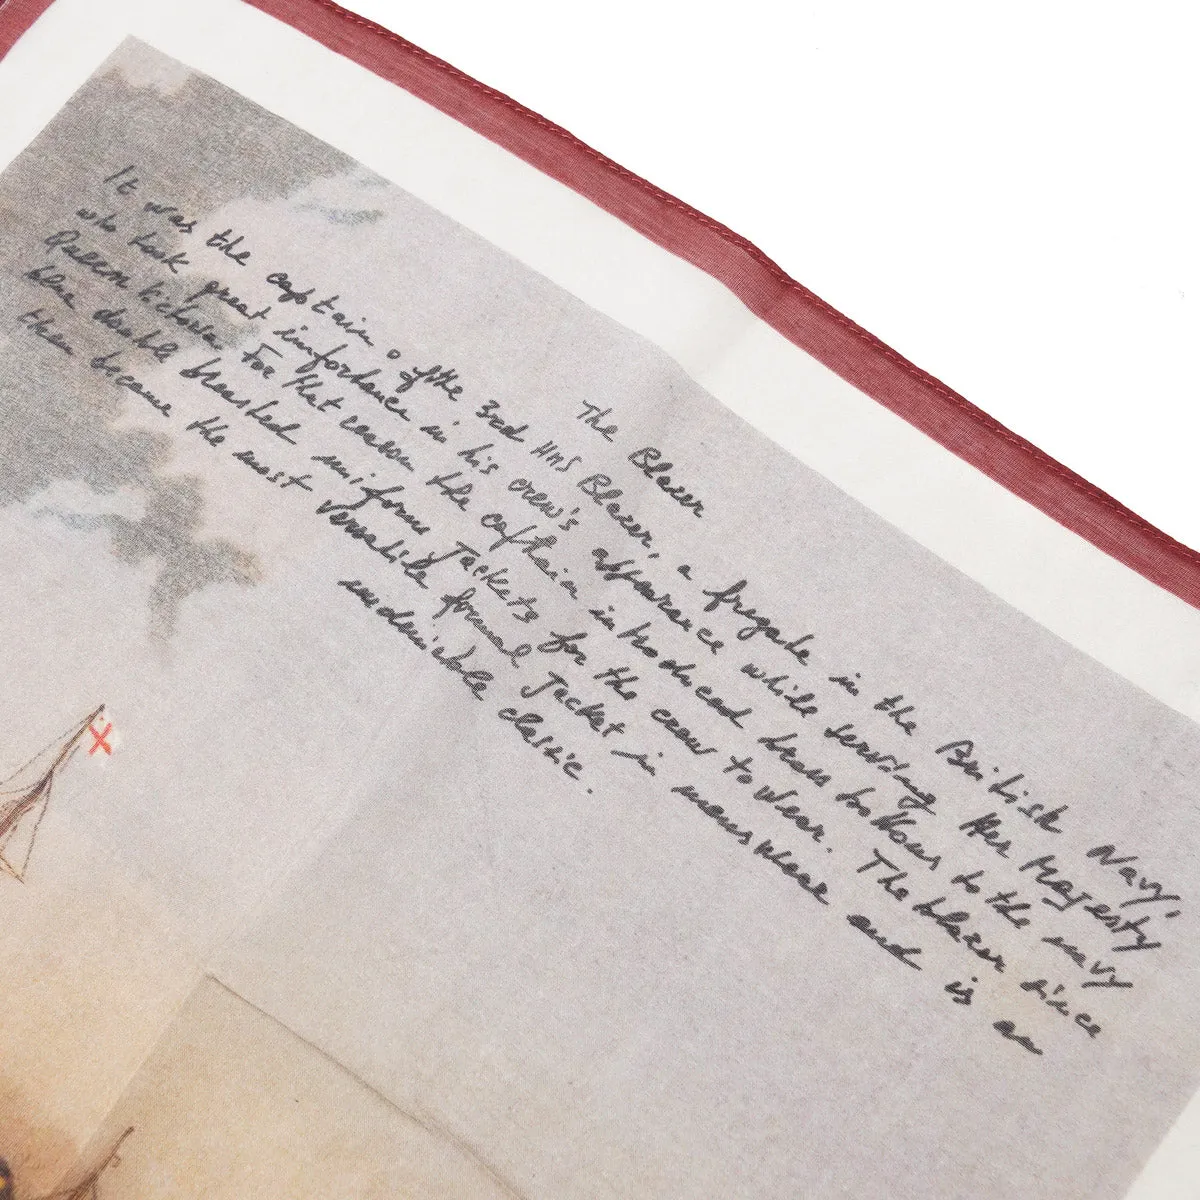 The Blazer
It was the captain of the 3rd HMS Blazer, a fregate in the British Navy,
who took great importance in his crew's appearance while serving Her Magesty
Queen Victoria. For that reason the captain introduced brass buttons to the navy
blue double breasted uniform Jackets for the crew to wear. The blazer since
then became the most versatile formal Jacket in menswear and is an
undeniable classic.